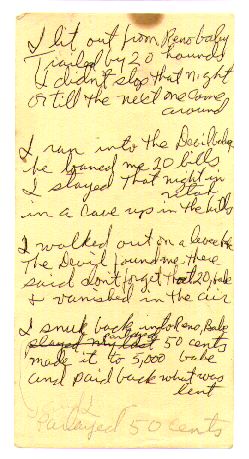 I lit out from Reno baby
Trailed by 20 hounds
I didn't stop that night
or till the next one come
around
I ran into the Devil babe
he loaned me 20 bills
I stayed that night in
in a cave up in the hills
I walked out on a
The Devil found me there
said don't forget that 20, babe
& vanished in the air
I snuk back into Reno, Babe
played my last 50 cents
made it to 5,000 babe
and paid back what was
lent
Parlayed 50 cents